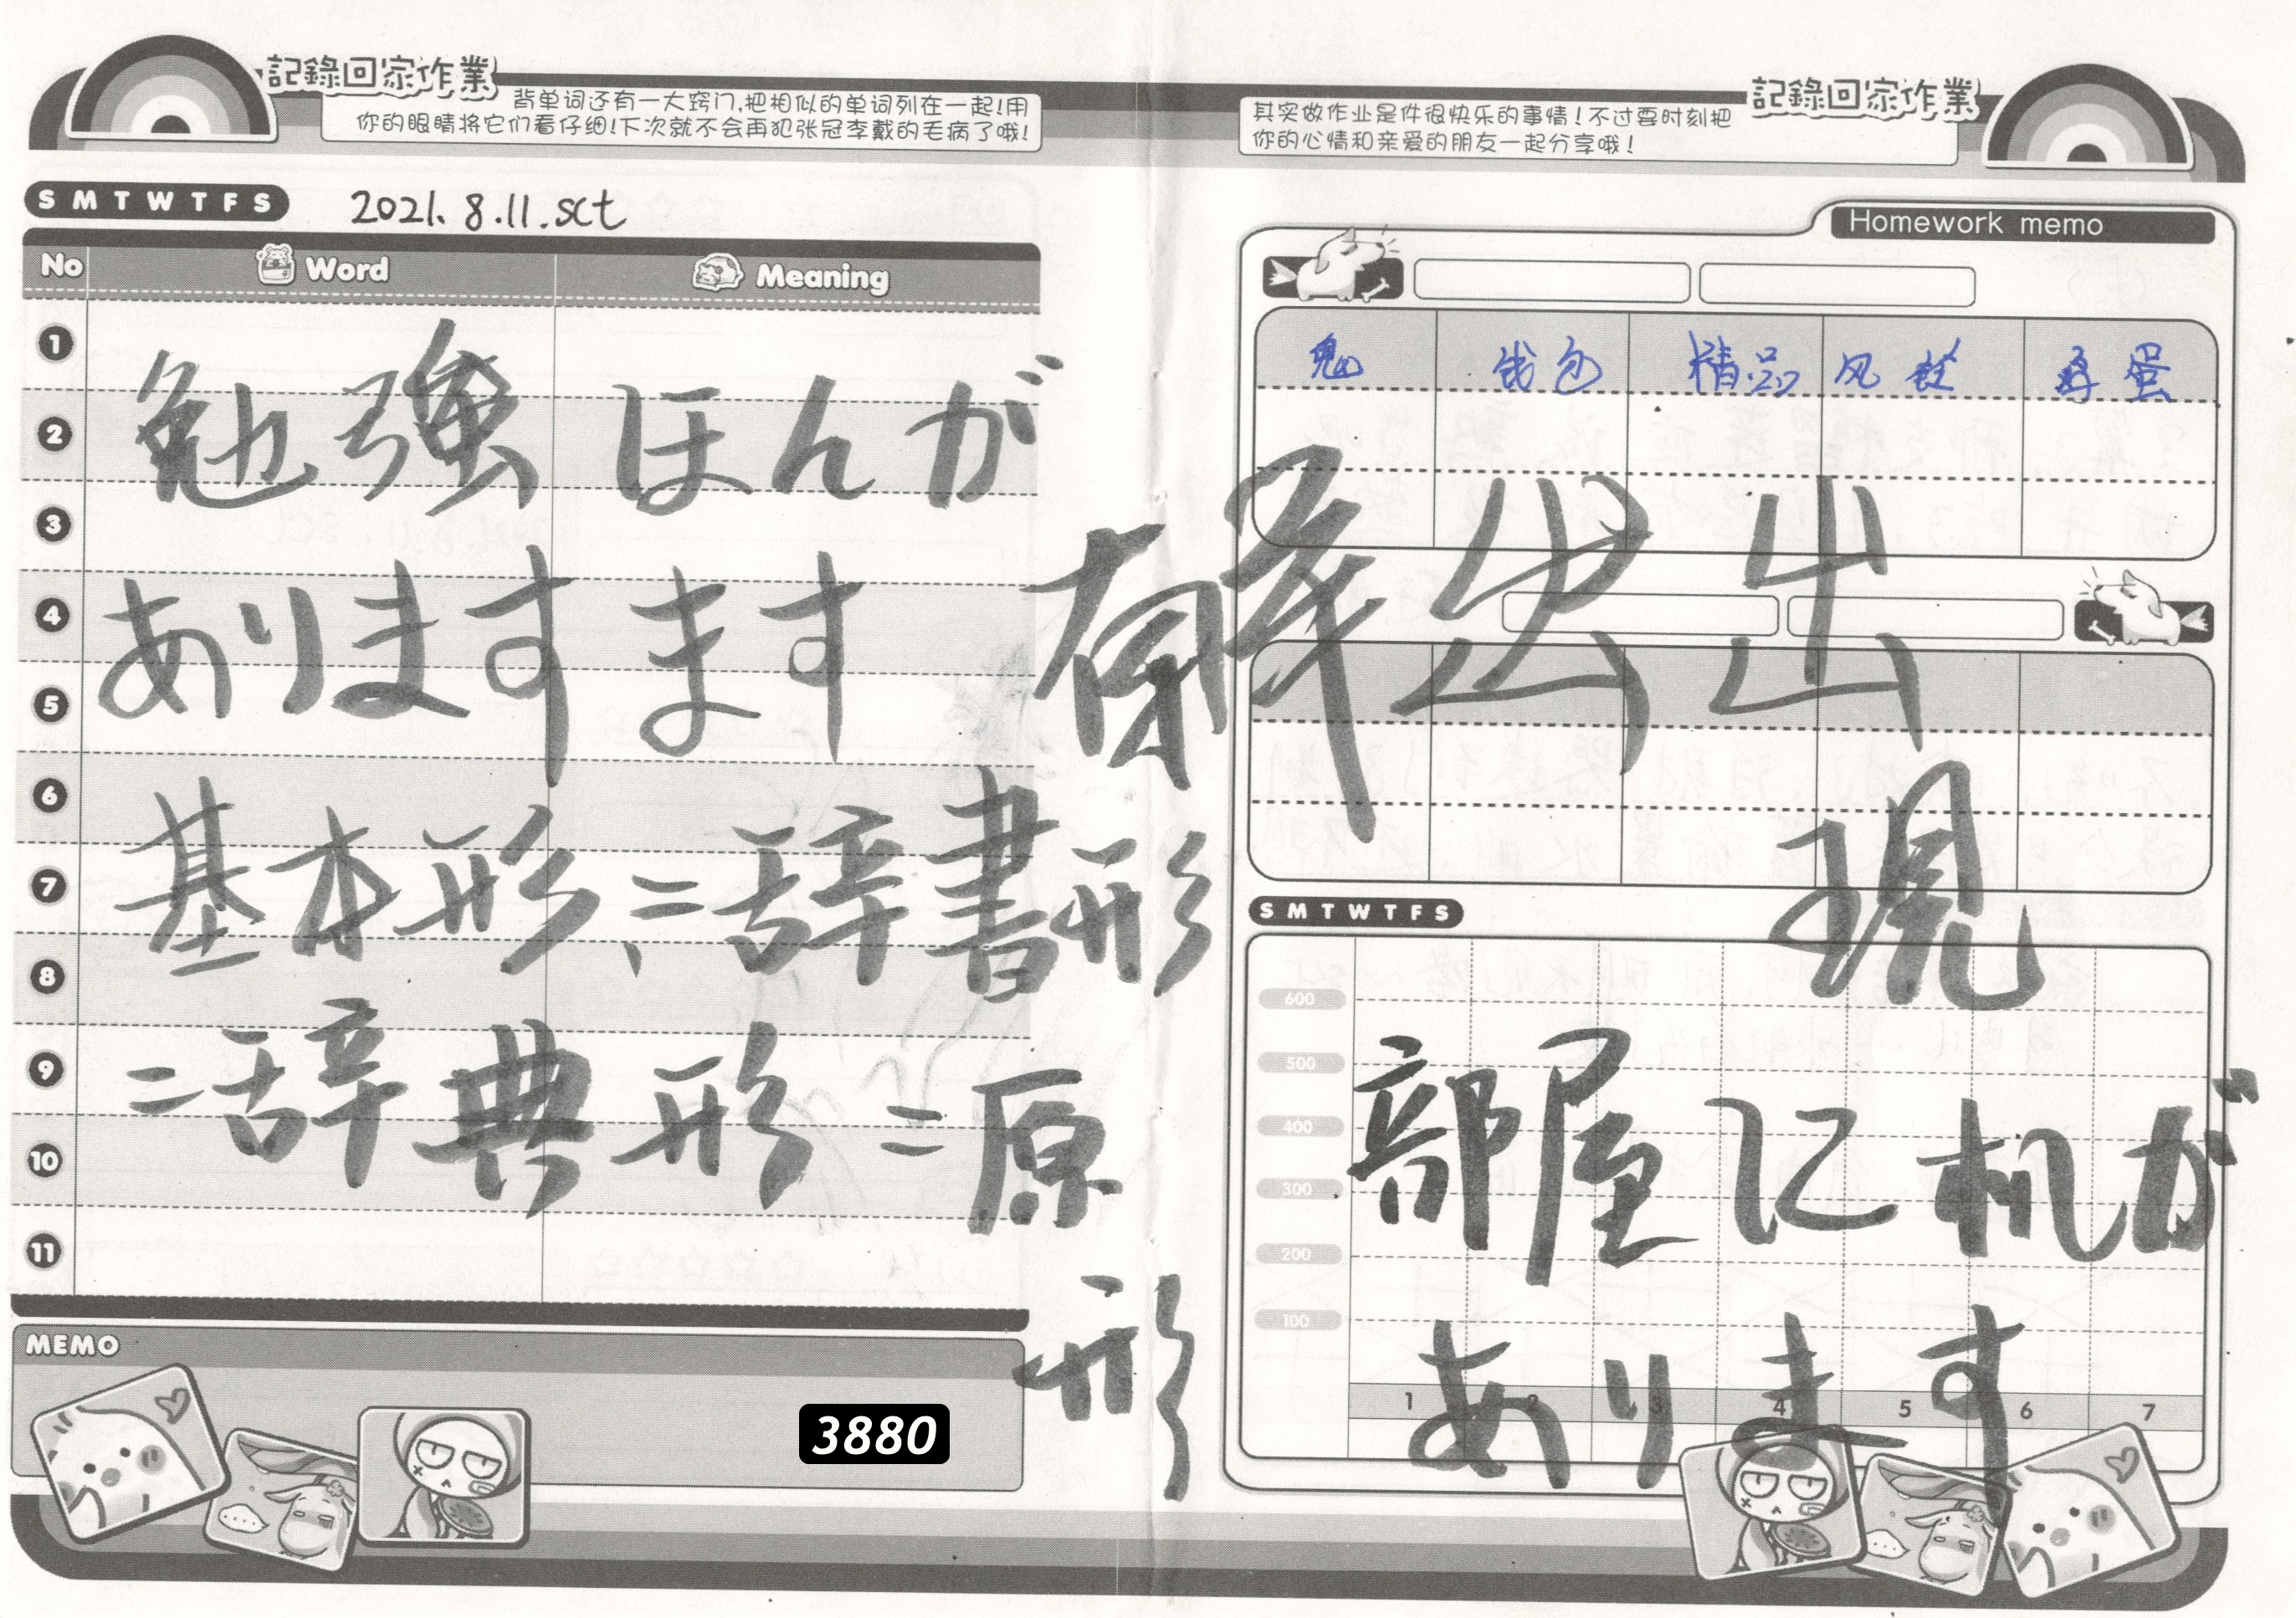 記錄回家作業
背单词还有一大窍门,把相似的单词列在一起!用
你的眼睛将它们看仔细!下次就不会再犯张冠李戴的毛病了哦!
S M T W T F S
2021.8.11.sct
No Word Meaning
1
2
勉強 ほんが
3
4
あります ます
5
6
7
基本形、=辞書形
8
9
=辞典形=原
10
11
形
MEMO
3880
記錄回家作業
其实做作业是件很快乐的事情!不过要时刻把
你的心情和亲爱的朋友一起分享哦!
Homework memo
鬼 钱包 精品 风 蛋
出 出
現
S M T W T F S
600
500
400
300
200
100
部屋に机が
あります
1 2 3 4 5 6 7